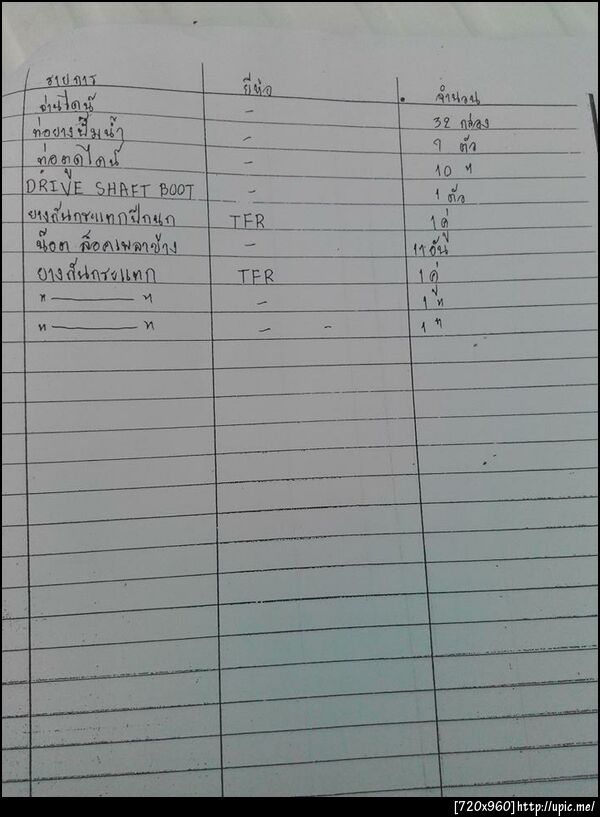 รายการ ยี่ห้อ จำนวน
ถ่านไดน์ - 32 กล่อง
ท่อยางปั๊มน้ำ - 9 ตัว
ท่อดูดไดน์ - 10 "
DRIVE SHAFT BOOT - 1 ตัว
ยางกันกระแทกปีกนก TFR 1 คู่
น๊อต ล็อคเพลาข้าง - 11 อัน
ยางกันกระแทก TFR 1 คู่
" ——— " - 1 "
" ——— " - - 1 "
[720x960]http://upic.me/